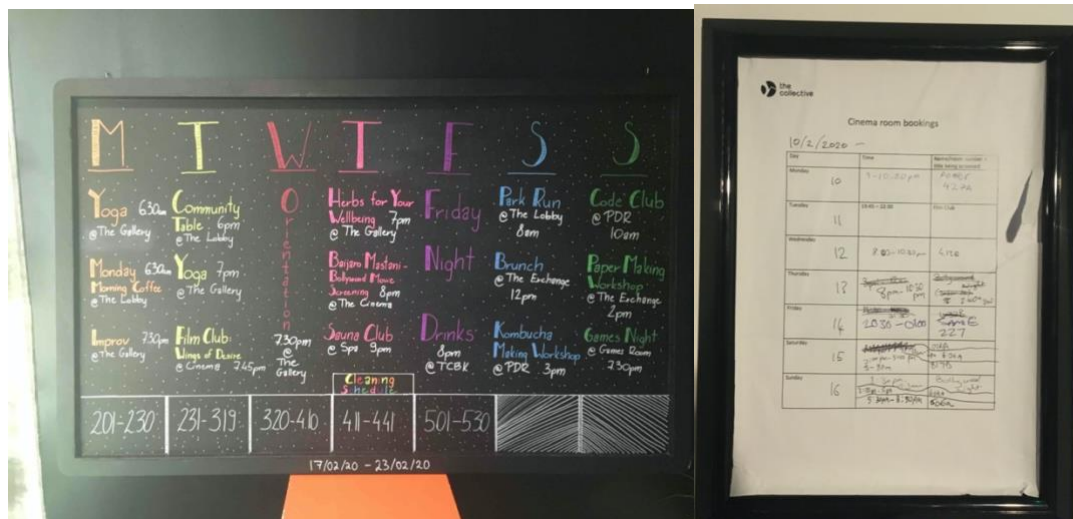 M T W T F S S
Yoga 630am
@ The Gallery
Monday 630am
Morning Coffee
@ The Lobby
Improv 730pm
@ The Gallery
Community
Table 6pm
@ The Lobby
Yoga 7pm
@ The Gallery
Film Club:
Wings of Desire
@ Cinema 745pm
Orentation
730pm
@
The
Gallery
Herbs for Your
Wellbeing 7pm
@ The Gallery
Bajiaro Mastani-
Bollywood Movie
Screening 8pm
@ The Cinema
Sauna Club
@ Spa 9pm
Friday
Night
Drinks
8pm
@ TCBK
Park Run
@ The Lobby
8am
Brunch
@ The Exchange
12pm
Kombucha
Making Workshop
@ PDR 3pm
Code Club
@ PDR
10am
Paper Making
Workshop
@ The Exchange
2pm
Games Night
@ Games Room
730pm
Cleaning
201-230 231-319 320-410 411-441 501-530
17/02/20 - 23/02/20
the
collective
Cinema room bookings
10/2/2020 -
Day Time
Monday 10
Tuesday 11
Wednesday 12
Thursday 13
8pm - 10:30
pm
Friday 14 20:30 - 227
Saturday 15
Sunday 16